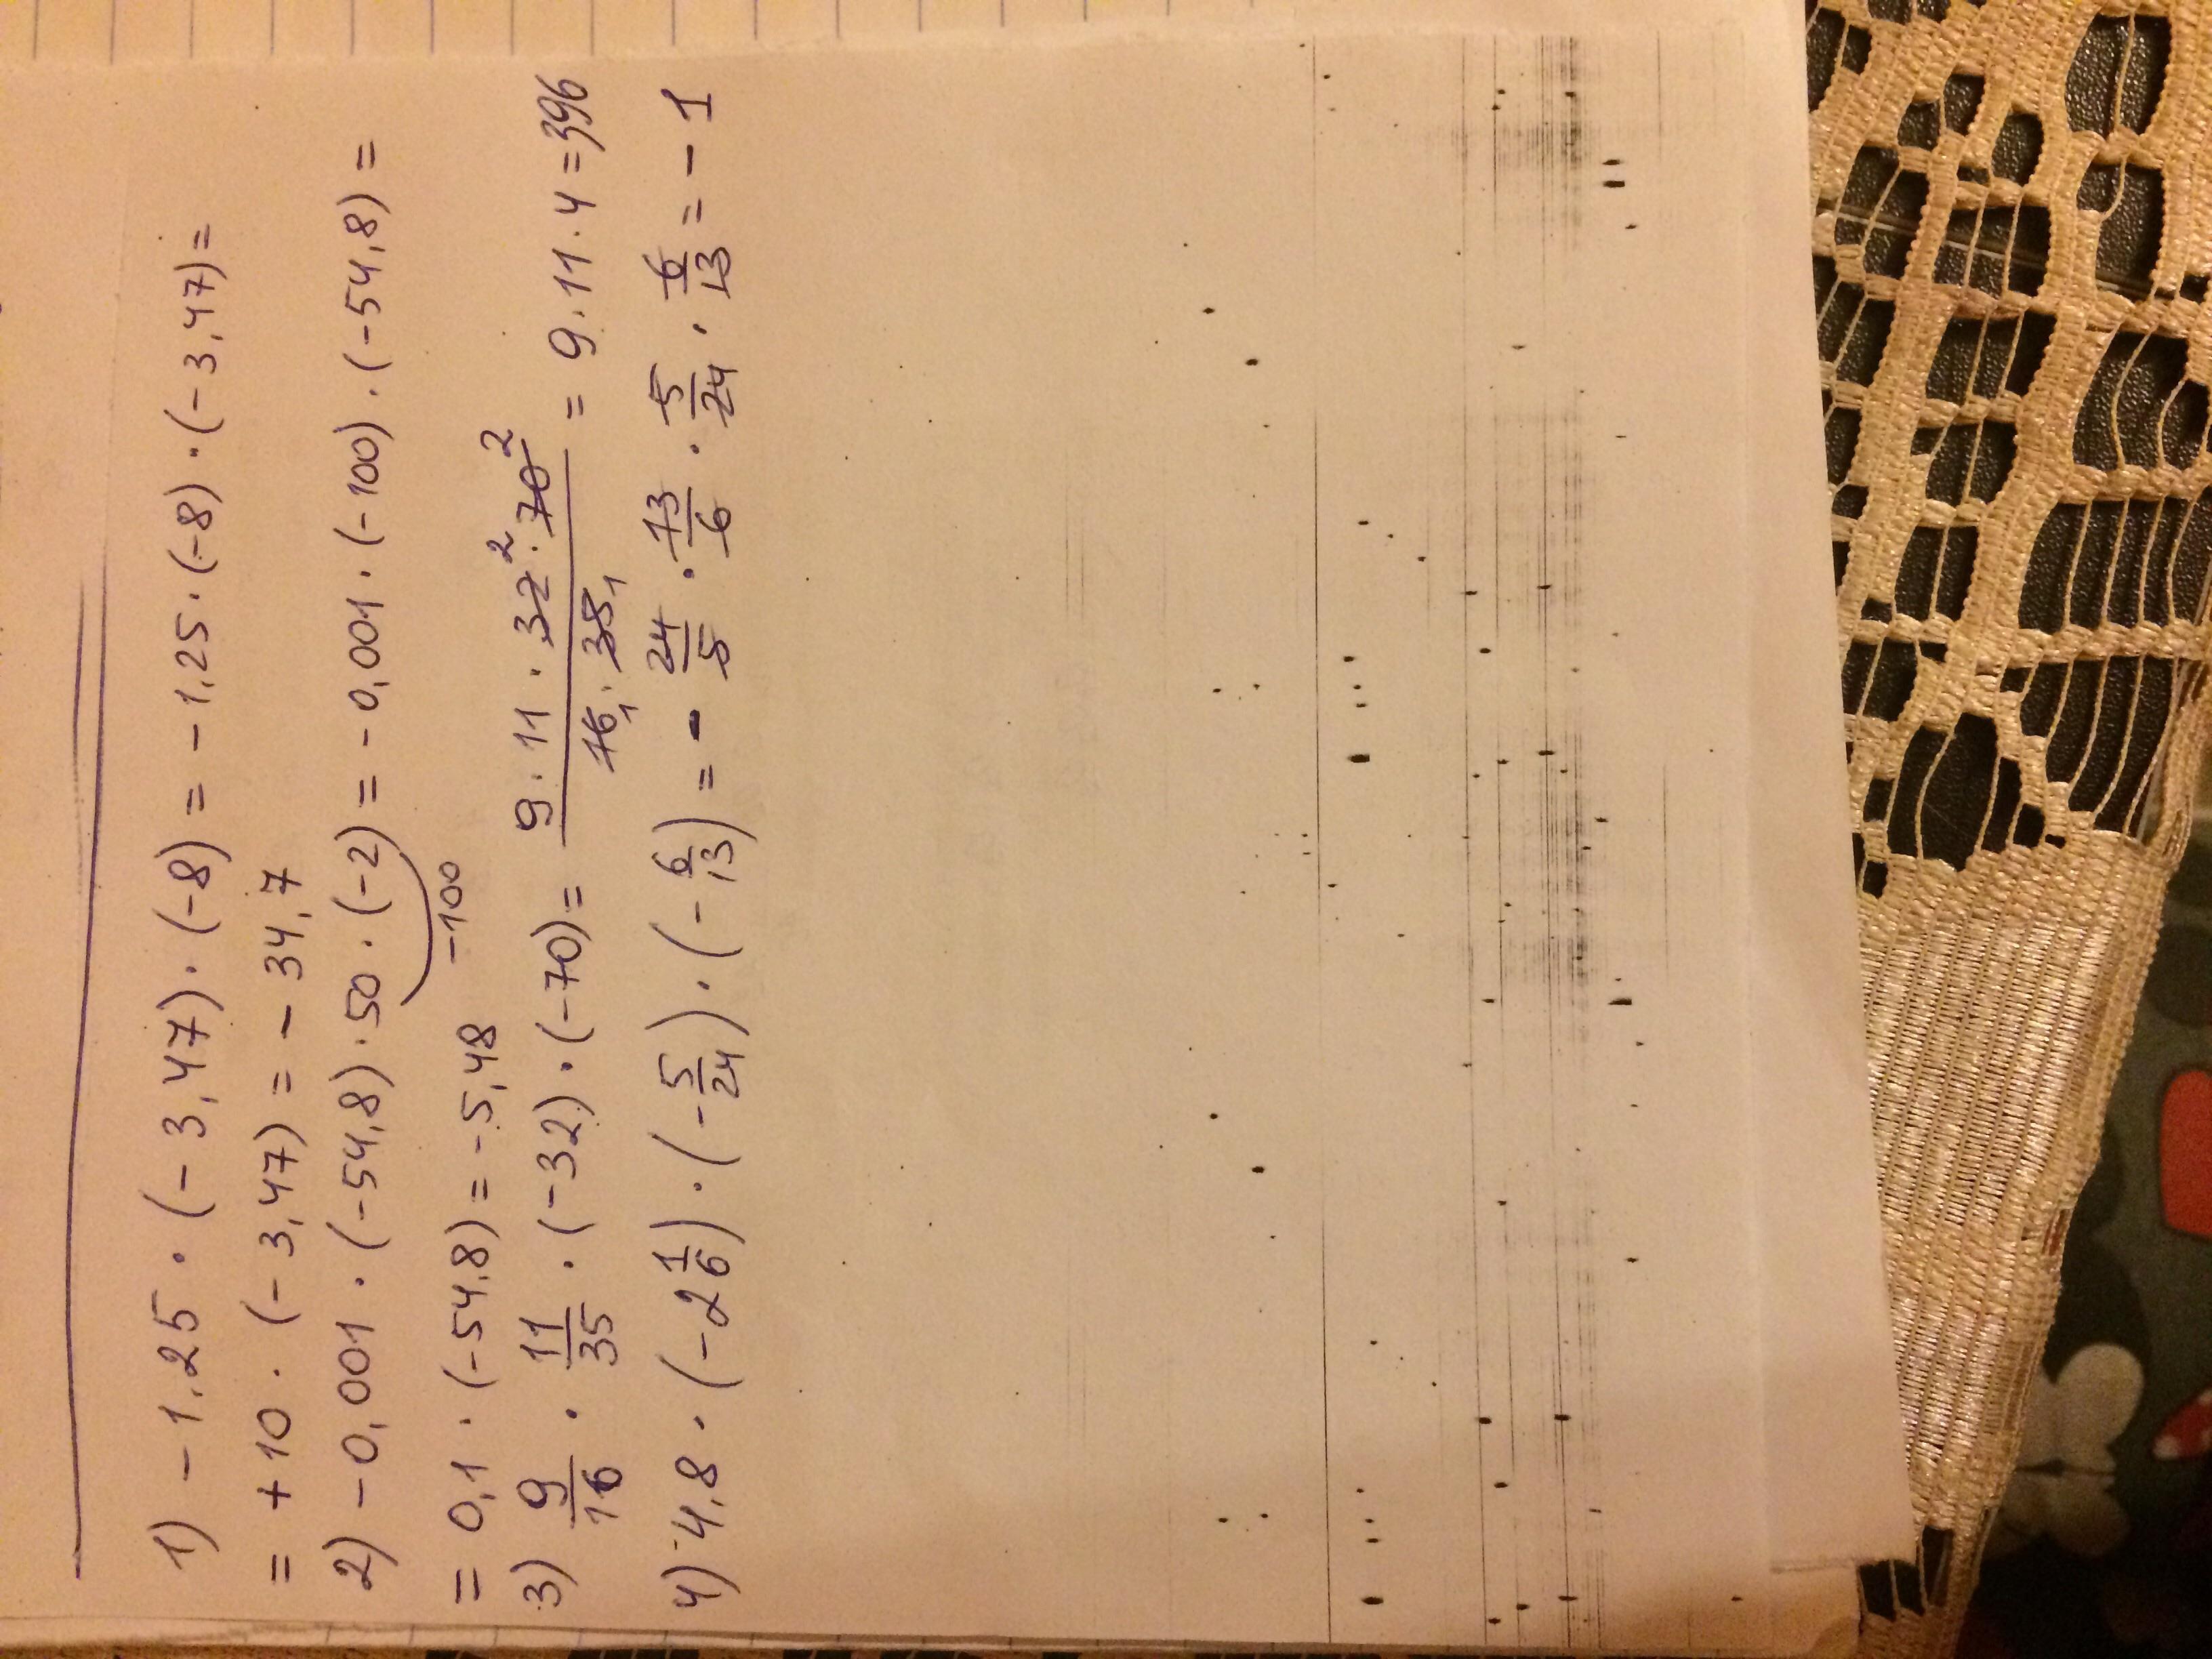 1) − 1,25 · (− 3,47) · (−8) = − 1,25 · (−8) · (− 3,47) =
= + 10 · (− 3,47) = − 34,7
2) − 0,001 · (−54,8) · 50 · (−2) = − 0,001 · (−100) · (−54,8) =
−100
= 0,1 · (−54,8) = − 5,48
3) 9/16 · 11/35 · (−32) · (−70) = 9 · 11 · 32² · 70² / 16₁ · 35₁ = 9 · 11 · 4 = 396
4) −4,8 · (−2 1/6) · (− 5/24) · (− 6/13) = − 24/5 · 13/6 · 5/24 · 6/13 = − 1